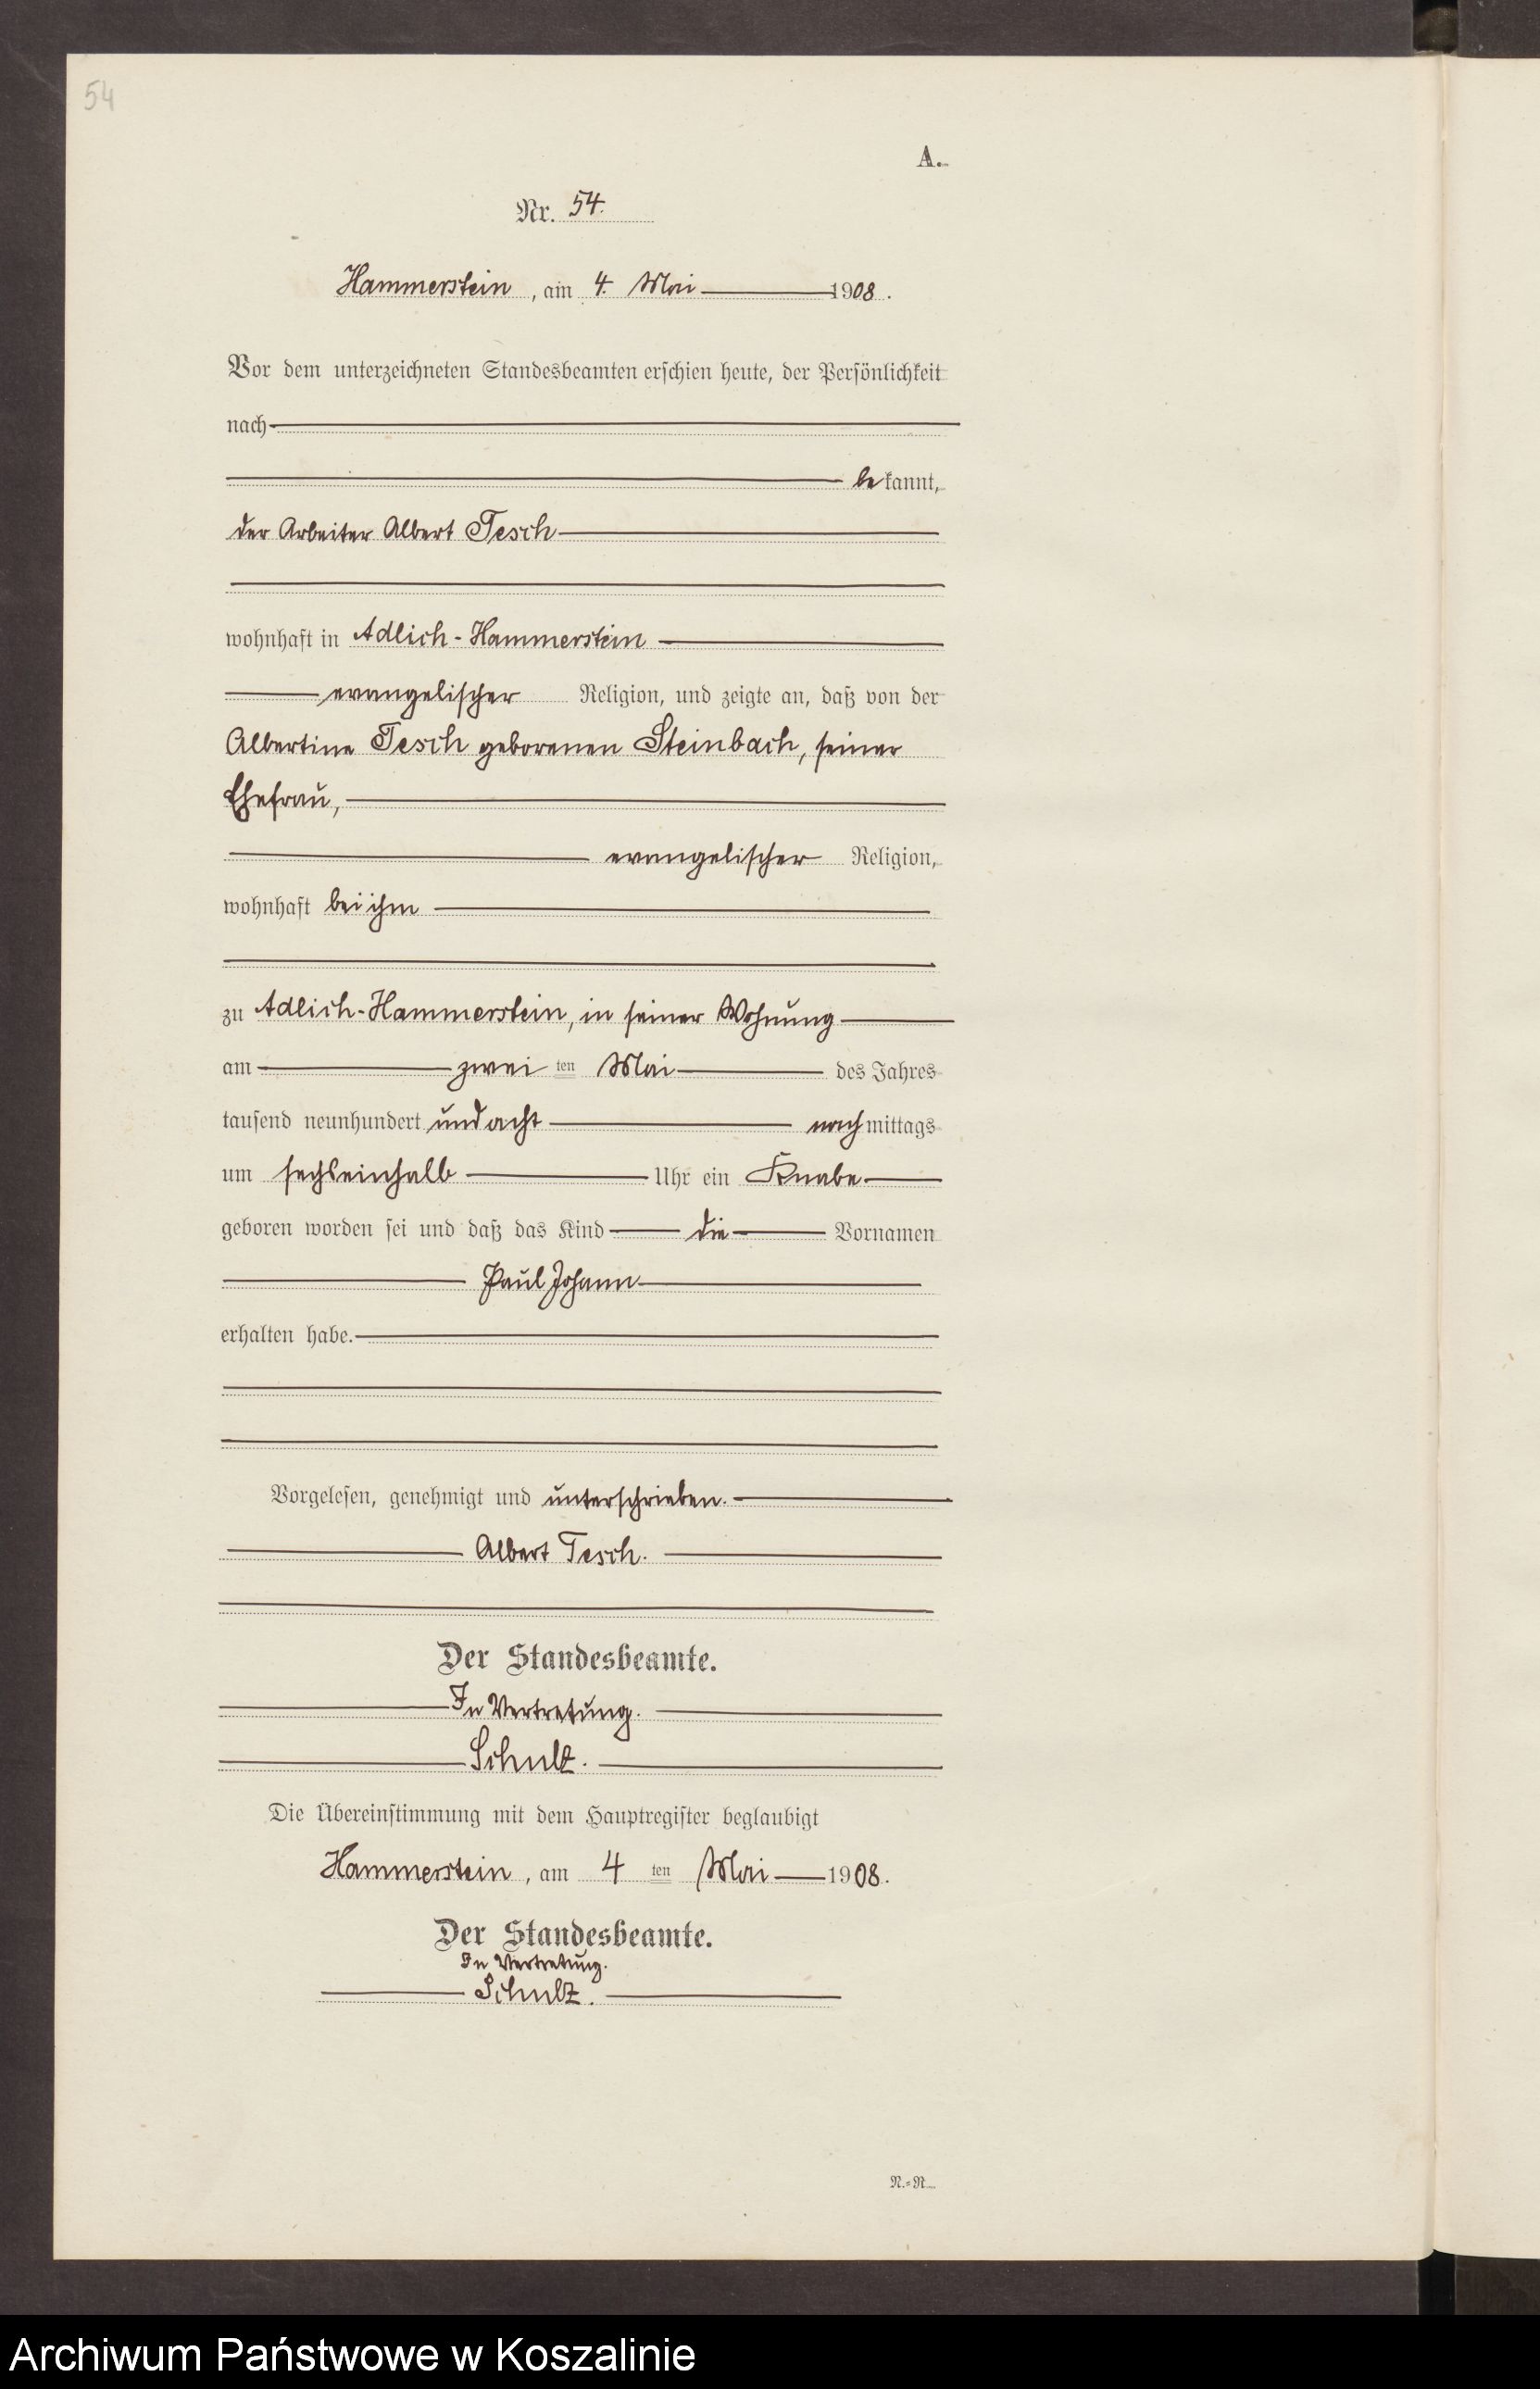 54
A.
Nr. 54.
Hammerstein, am 4. Mai 1908.
Vor dem unterzeichneten Standesbeamten erschien heute, der Persönlichkeit
nach
bekannt,
der Arbeiter Albert Tesch
wohnhaft in Adlich-Hammerstein
evangelischer Religion, und zeigte an, daß von der
Albertine Tesch geborenen Steinbach, seiner
Ehefrau,
evangelischer Religion,
wohnhaft bei ihm
zu Adlich-Hammerstein, in seiner Wohnung
am zwei ten Mai des Jahres
tausend neunhundert und acht nachmittags
um sechseinhalb Uhr ein Knabe
geboren worden sei und daß das Kind die Vornamen
Paul Johann
erhalten habe.
Vorgelesen, genehmigt und unterschrieben.
Albert Tesch.
Der Standesbeamte.
In Vertretung.
Schulz.
Die Übereinstimmung mit dem Hauptregister beglaubigt
Hammerstein, am 4 ten Mai 1908.
Der Standesbeamte.
In Vertretung.
Schulz.
N.=R.
Archiwum Państwowe w Koszalinie